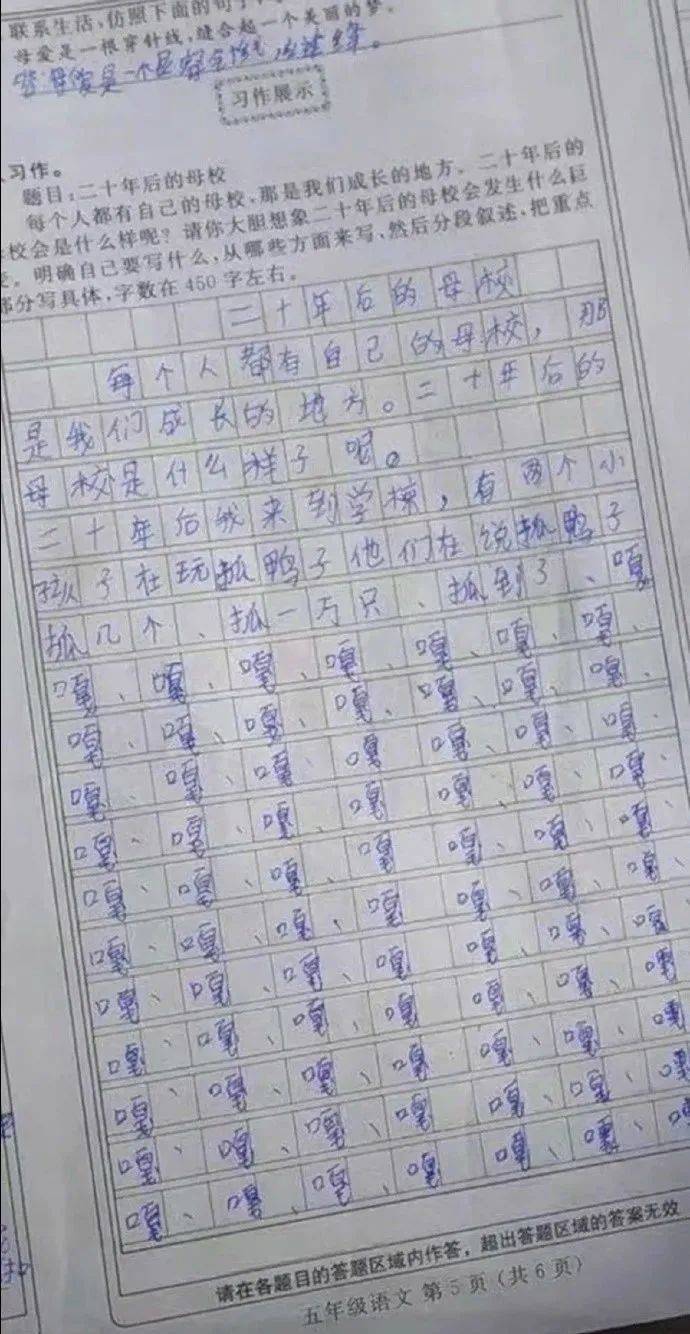 联系生活,仿照下面的句子
母爱是一根穿针线,缝合起一个美丽的梦。
母爱是一个
习作展示
习作。
题目:二十年后的母校
每个人都有自己的母校,那是我们成长的地方。二十年后的
校会是什么样呢?请你大胆想象二十年后的母校会发生什么巨
变。明确自己要写什么,从哪些方面来写,然后分段叙述,把重点
部分写具体,字数在450字左右。
二十年后的母校
每个人都有自己的母校,那
是我们成长的地方。二十年后的
母校是什么样子呢。
二十年后我来到学校,有两个小
孩子在玩抓鸭子他们在说抓鸭子
抓几个、抓一万只、抓到了、嘎
嘎、嘎、嘎、嘎、嘎、嘎、嘎、
嘎、嘎、嘎、嘎、嘎、嘎、嘎、
嘎、嘎、嘎、嘎、嘎、嘎、嘎、
嘎、嘎、嘎、嘎、嘎、嘎、嘎、
嘎、嘎、嘎、嘎、嘎、嘎、嘎、
嘎、嘎、嘎、嘎、嘎、嘎、嘎、
嘎、嘎、嘎、嘎、嘎、嘎、嘎、
嘎、嘎、嘎、嘎、嘎、嘎、嘎
嘎、嘎、嘎、嘎、嘎、嘎、嘎
嘎、嘎、嘎、嘎、嘎、嘎、嘎
嘎、嘎、嘎、嘎、嘎、嘎、嘎
请在各题目的答题区域内作答,超出答题区域的答案无效
五年级语文 第5页(共6页)